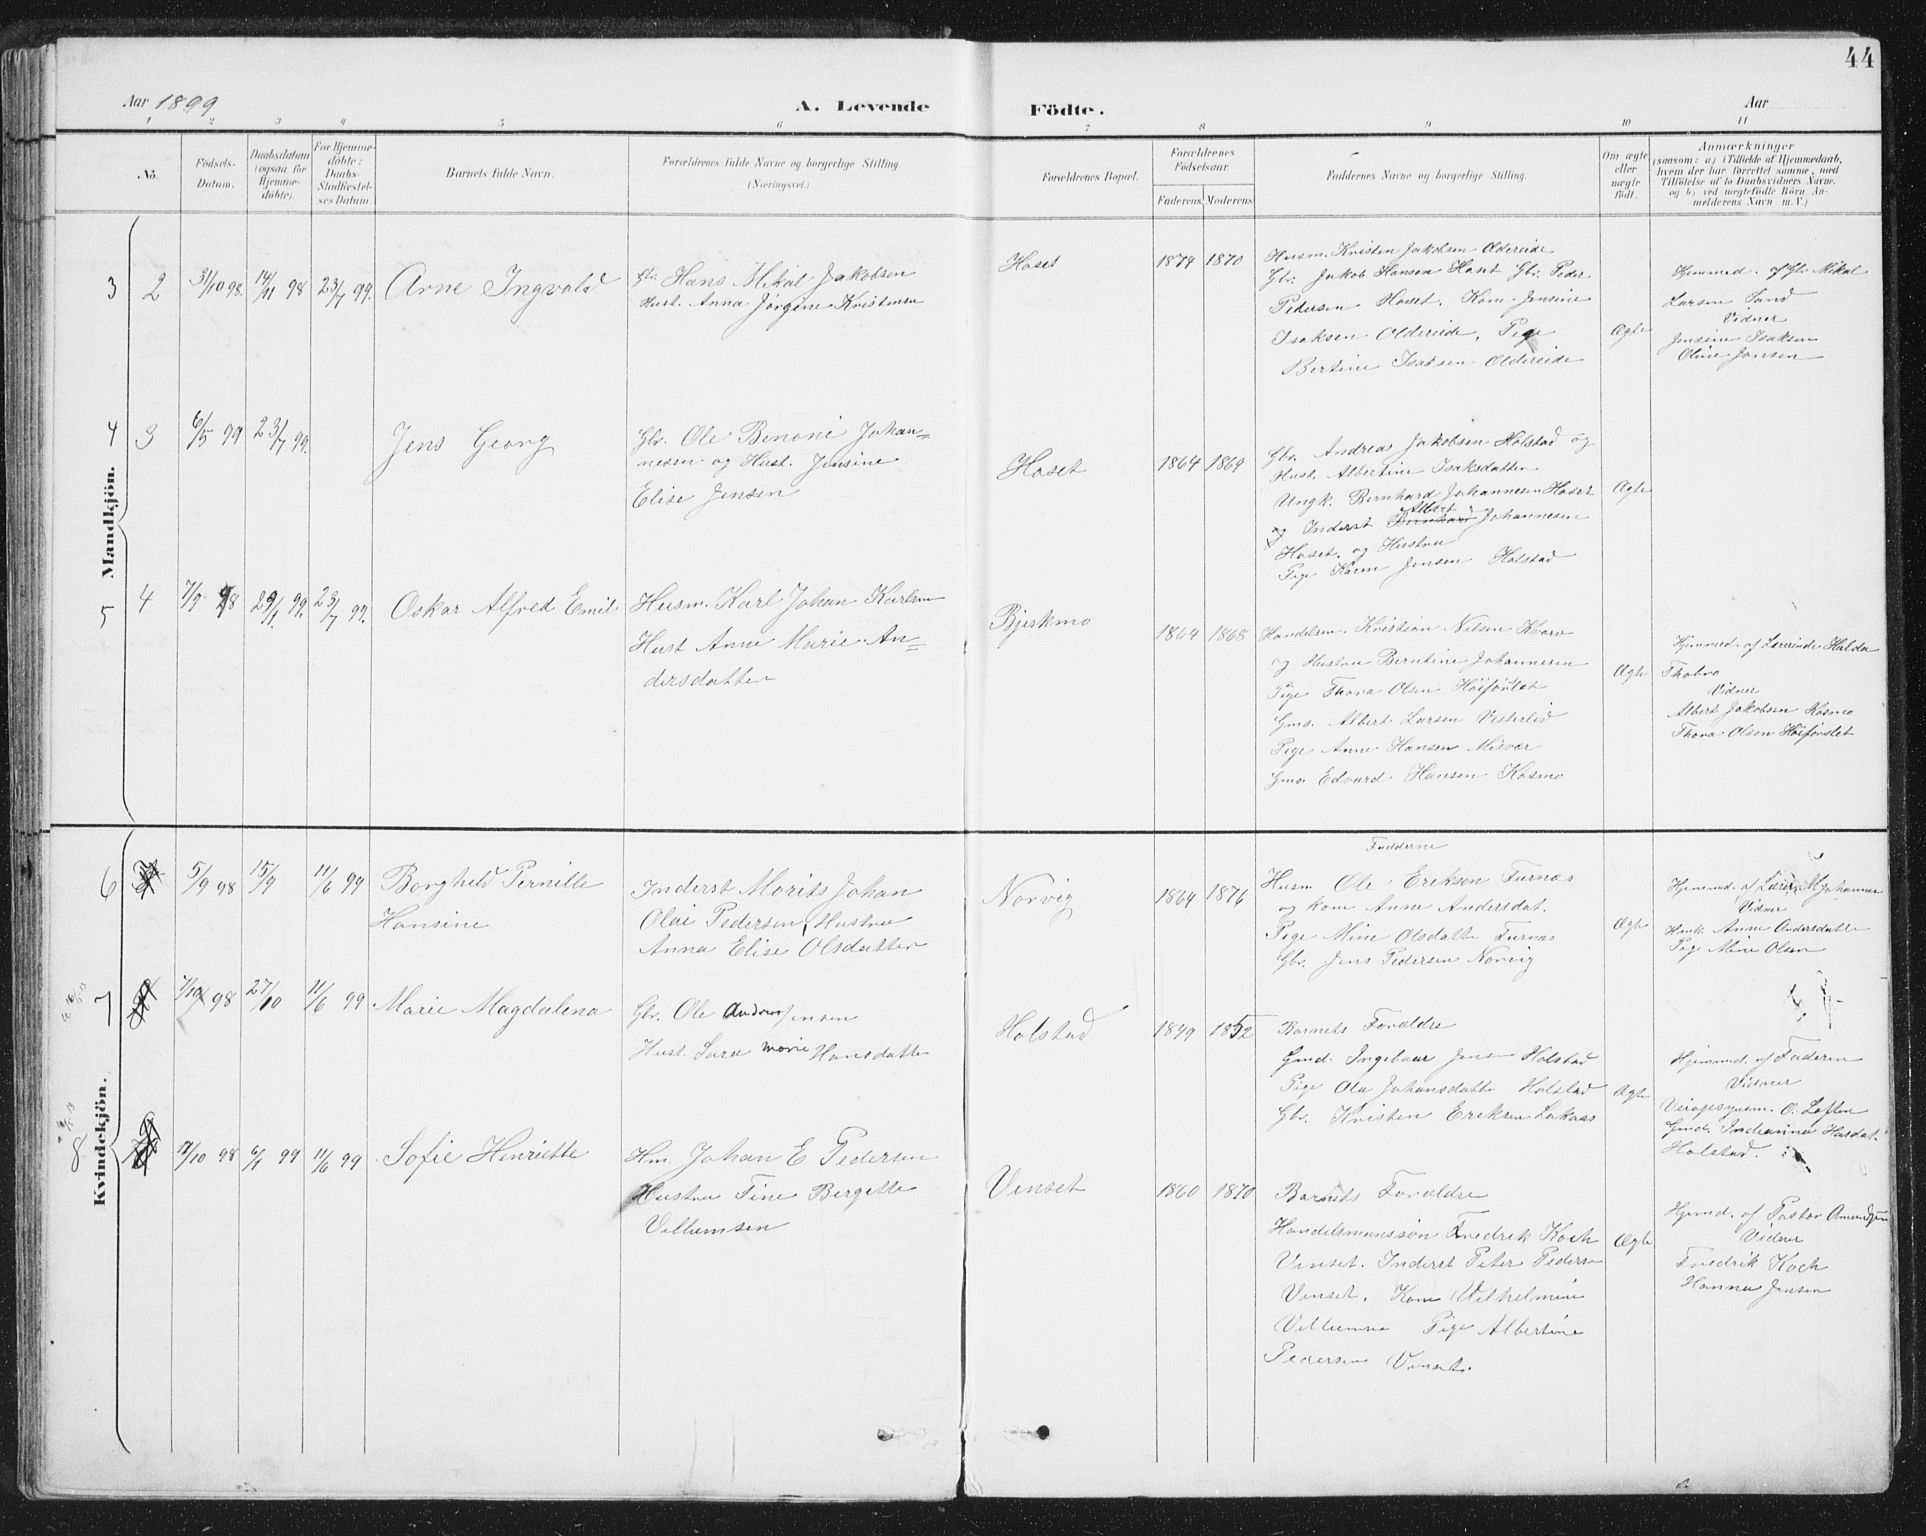 44
Aar 1899
A. Levende Födte.
Aar
1 2 3 4 5 6 7 8 9 10 11
No.
Födsels-Datum.
Daabsdatum (ogsaa for Hjemme-döbte).
For Hjemme-döbte: Daabs-Stadfæstel-ses Datum.
Barnets fulde Navn.
Forældrenes fulde Navne og borgerlige Stilling.
(Næringsvei.)
Forældrenes Bopæl.
Forældrenes Födselsaar.
Faderens Moderens
Faddernes Navne og borgerlige Stilling.
Om ægte eller uægte födt.
Anmærkninger
(saasom: a) i Tilfælde af Hjemmedaab,
hvem der har forrettet samme, med
Tilföielse af to Daabsvidners Navne,
og b) ved uegtefödte Börn An-
melderens Navn m. V.)
Mandkjön.
3 2 31/10 98. 14/11 98 23/7 99. Arne Ingvald
Gbr. Hans Mikal Jakobsen
Hust. Anna Jörgine Kristensen
Hoset 1874 1870
Husm. Kristen Jakobsen Oldereide
Gbr. Jakob Hansen Hoset Gbr. Peder
Pedersen Hoset. Kone Jensine
Isaksen Oldereide, Pige
Bertine Isaksen Oldereide
Ægte
Hjemmed. af Gbr. Mikal
Larsen Sand
Vidner
Jensine Isaksen
Oline Jensen
4 3 6/5 99 23/7 99. Jens Georg
Gbr. Ole Benoni Johan=
nesen og Hust. Jensine
Elise Jensen
Hoset 1864 1869
Gbr. Andreas Jakobsen Holstad og
Hust. Albertine Isaksdatter
Ungk. Bernhard Johannesen Hoset
og Inderst Albert Johannesen
Hoset. og Hustru
Pige Karen Jensen Holstad
Ægte
5 4 7/9 98 29/1 99. 23/7 99. Oskar Alfred Emil
Husm. Karl Johan Karlsen
Hust Anne Marie An=
dersdatter
Bjerkmo 1864 1868
Handelsm. Kristian Nilsen Kvarv
og Hustru Berntine Johannesen
Pige Thora Olsen Höiforslet
Gms. Albert Larsen Vesterlid
Pige Anne Hansen Misvær
Gms. Edvard Hansen Kosmo
Ægte
Hjemmed. af Lærerinde Hulda
Thobro
Vidner
Albert Jakobsen Kosmo
Thora Olsen Höiforslet
Kvindekjön.
6 5/9 98 15/9 11/6 99 Borghild Pernille
Hansine
Inderst Morits Johan
Olai Pedersen, Hustru
Anna Elise Olsdatter
Norvig 1864 1876
Fadderne
Husm Ole Eriksen Furnes
og kone Anne Andersdat.
Pige Mine Olsdatte Furnes
Gbr. Jens Pedersen Norvig
Ægte
Hjemmed. af Lærer Mjohannes
Vidner
Anne Andersdatte
Pige Mine Olsen
7 7/10 98 27/10 11/6 99 Marie Magdalena
Gbr. Ole Andreas Jensen
Hust. Sara Marie Hansdatter
Holstad 1849 1852
Barnets Forældre
Gmd. Ingebaar Jens Holstad
Pige Ola Johansdatte Holstad
Gbr. Kristen Eriksen Lakaas
Ægte
Hjemmed. af Faderen
Vidner
Veiopsynsm. O. Loften
Gmd. Indianna Hansdat.
Holstad.
8 11/10 98 6/1 99 11/6 99 Sofie Henriette
Hm. Johan E Pedersen
Hustru Tine Bergitte
Villumsen
Venset 1860 1870
Barnets Forældre
Handelsmanssøn Fredrik Koch
Venset. Inderst Peter Pederse
Venset. Kone Wilhelmine
Villumse Pige Albertine
Pedersen Venset.
Ægte
Hjemd. af Pastor Amundsen
Vidner
Fredrik Koch
Hanna Jensen